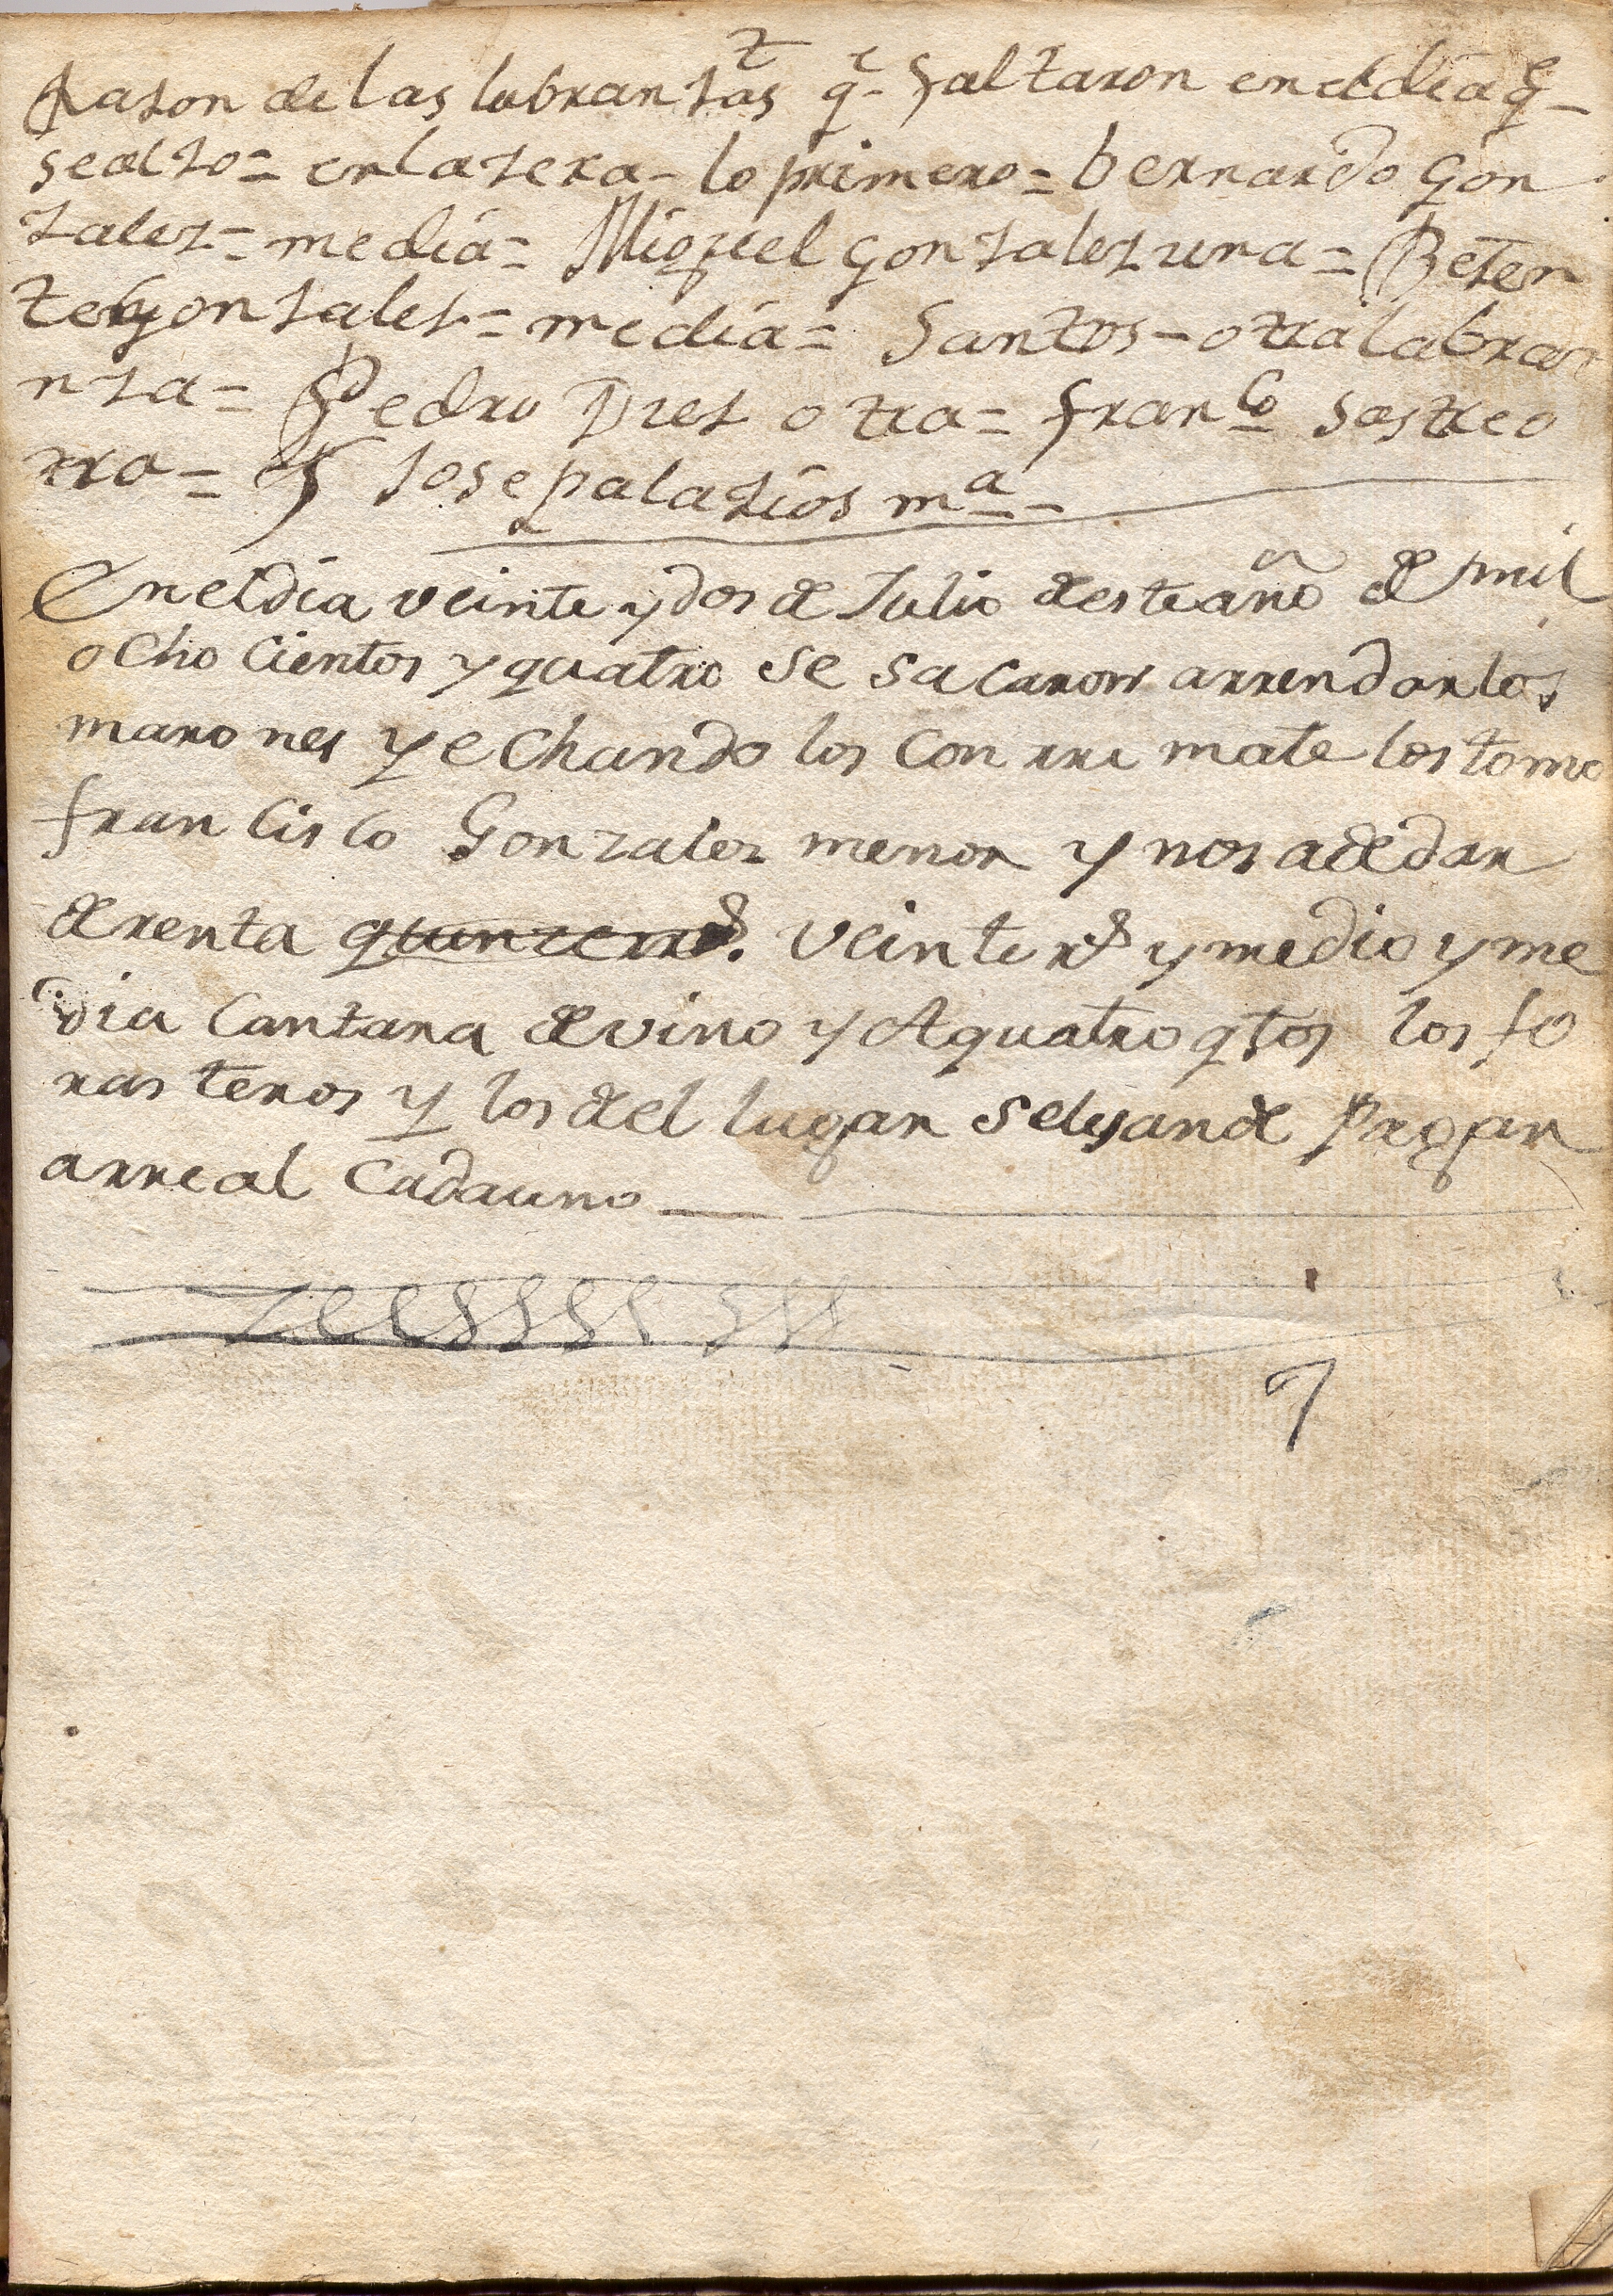 Rason de las labransas q.e faltaron en el dia q.e
se also = en la sera - lo primero = bernardo gon
sales = media = Miguel gonsales una = Bisen
te gonsales = media = Santos - otra labra
nsa = Pedro Dies otra = fran.co sastre o
tra = Y Jose palasios m.a -
En el dia veinte y dos de Julio de este año de mil
ocho cientos y quatro se sacaron arrendar los
marones y echando los con rre mate los tomo
francisco Gonzalez menor y nos a de dar
de renta quince rr.s veinte r.s y medio y me
dia Cantara de vino y A quatro qtos los fo
rasteros y los del lugar se les an de Pagar
a rreal Cada uno